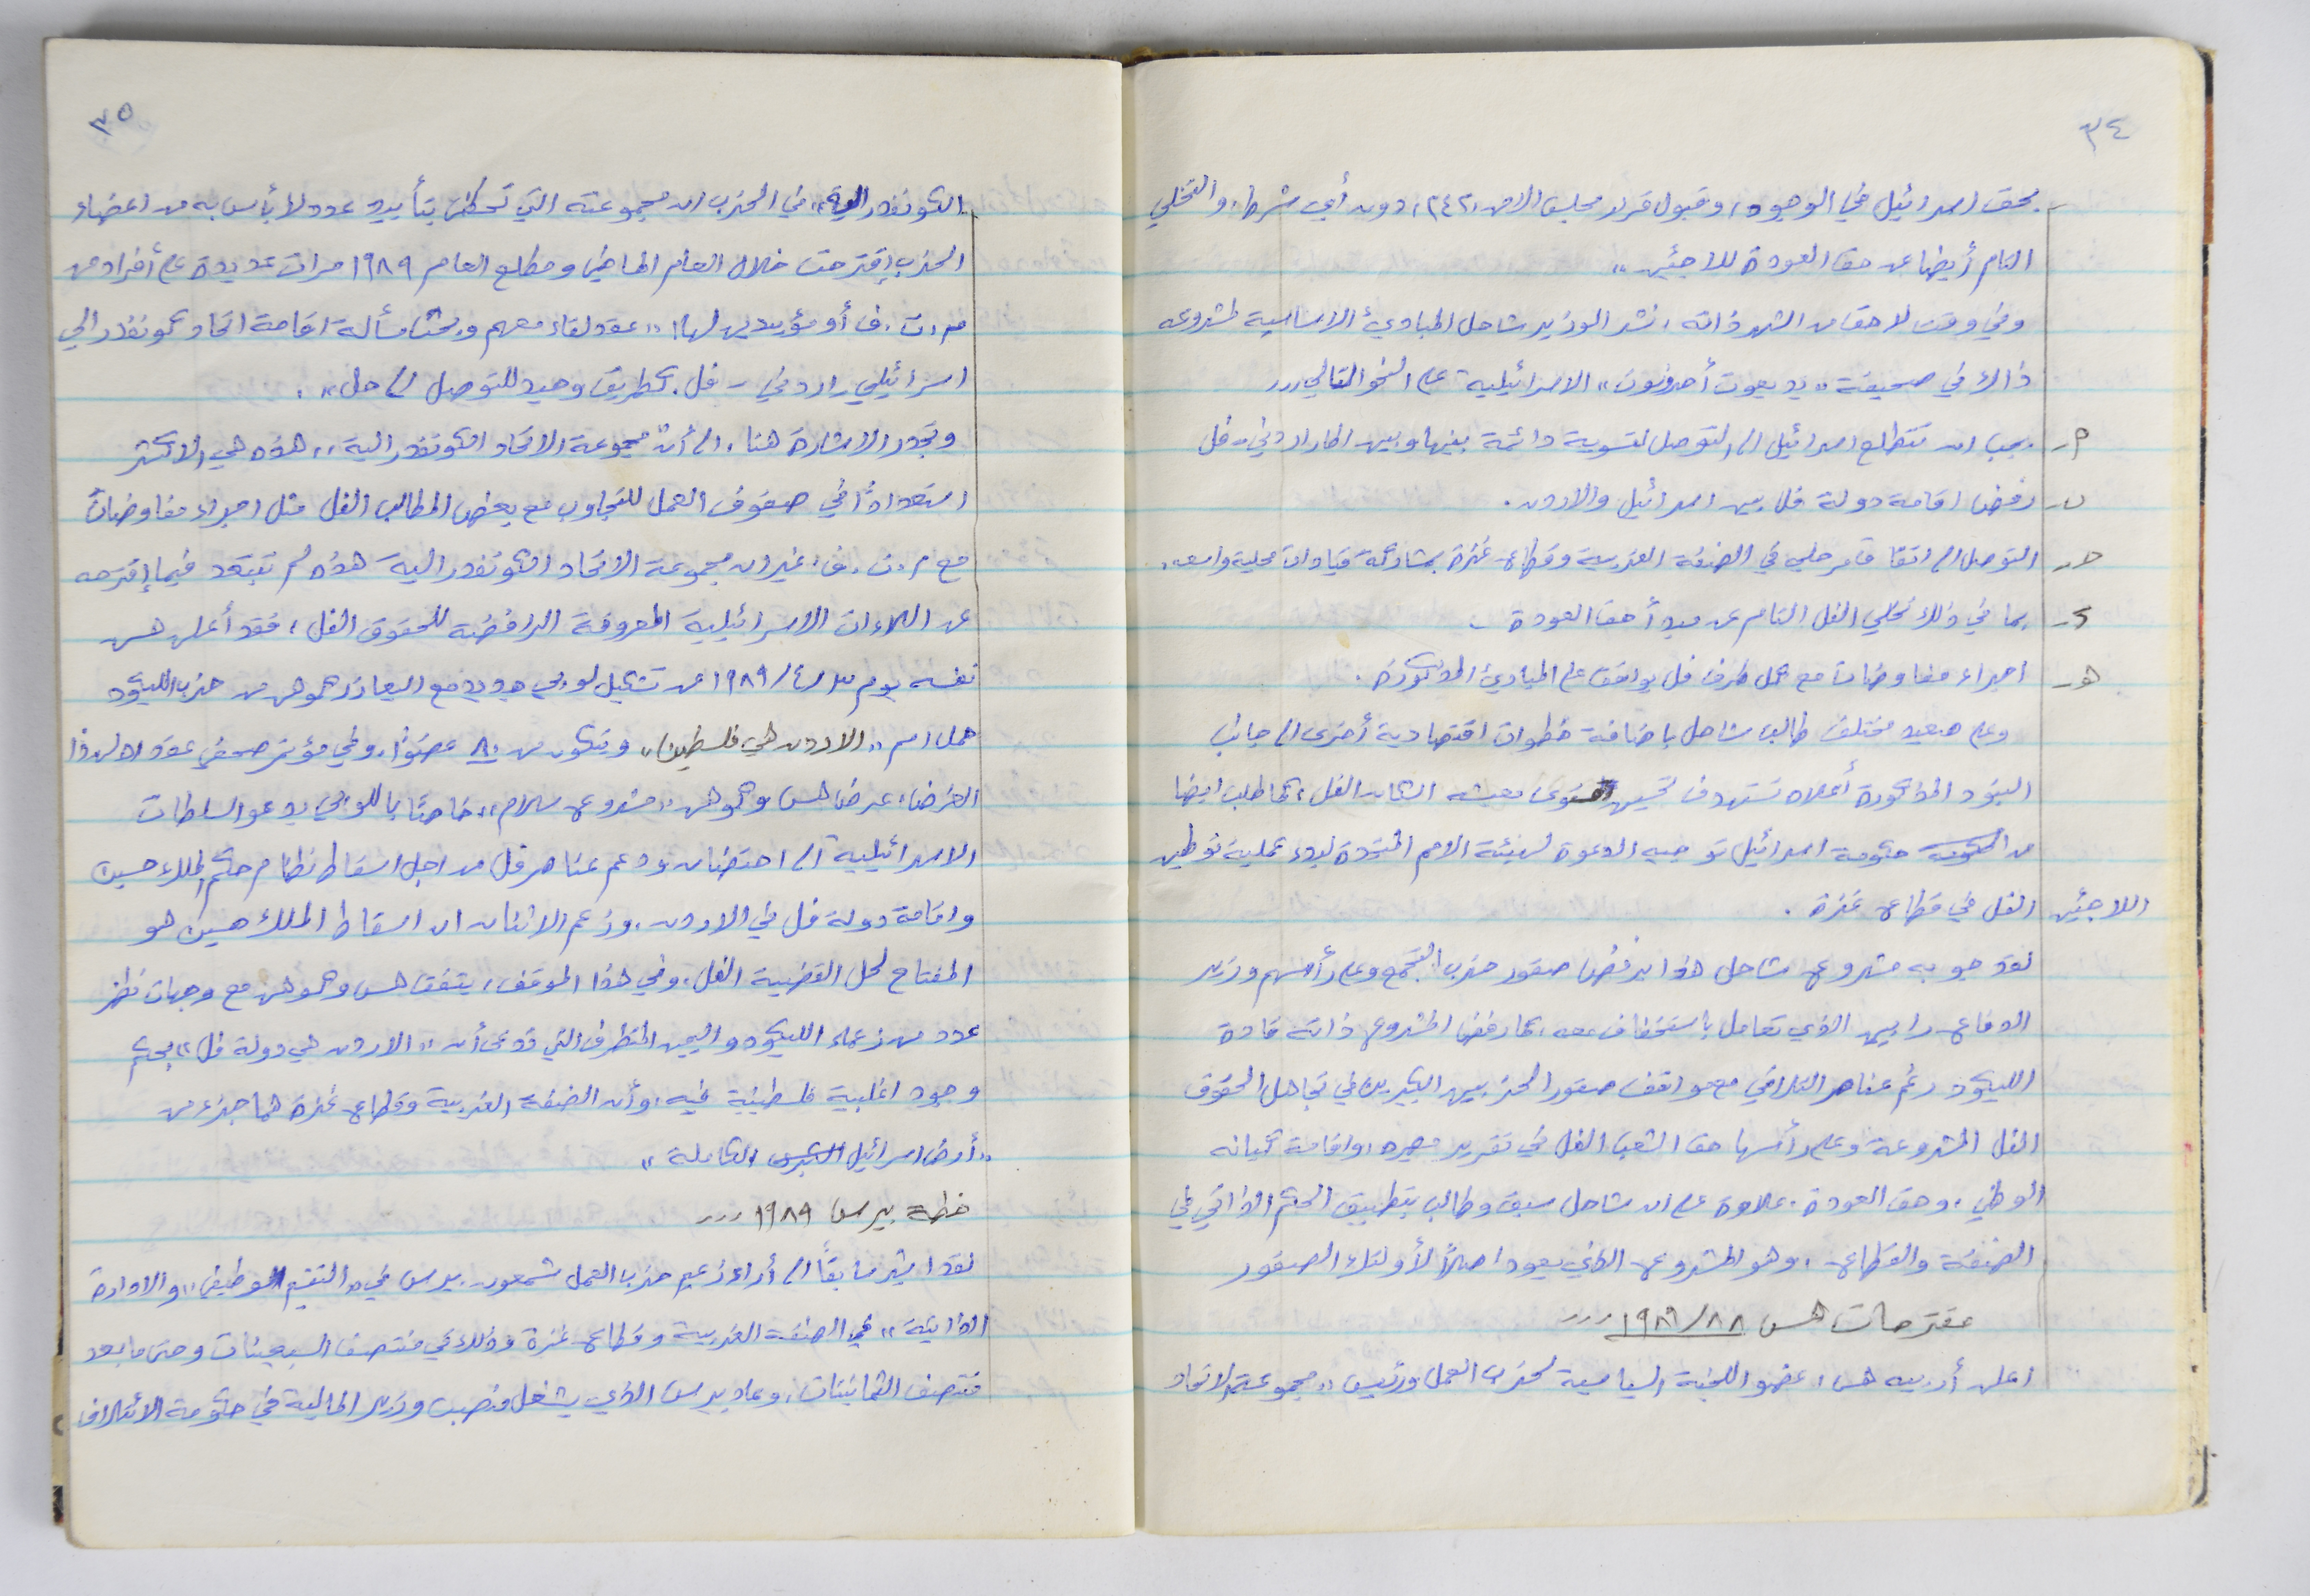 ٣٤
بحق اسرائيل في الوجود، وقبول قرار مجلس الامن ٢٤٢، دون أي شرط، والتخلي
التام أيضا عن حق العودة للاجئين"
وفي وقت لاحق من الشهر ذاته، نشر الوزير شاحل المبادئ الاساسية لمشروعه
ذاك في صحيفة "يديعوت أحرونوت" الاسرائيلية على النحو التالي..
م- يجب ان تتطلع اسرائيل الى التوصل لتسوية دائمة بينها وبين اطار اردني- فل
ب- رفض اقامة دولة فل بين اسرائيل والاردن.
حـ- التوصل الى اتفاق مرحلي في الضفة الغربية وقطاع غزة بمشاركة قيادات محلية واسعه.
د- بما في ذلك تخلي الفل التام عن مبدأ حق العودة -
هـ- اجراء مفاوضات مع كل طرف فل يوافق على المبادئ المذكورة.
وعلى صعيد مختلف طالب شاحل باضافة خطوات اقتصادية أخرى الى جانب
البنود المذكورة أعلاه تستهدف تحسين مستوى معيشه السكان الفل، كما طلب ايضا
من حكومة اسرائيل توجيه الدعوة لهيئة الامم المتحدة لبدء عملية توطين
اللاجئين الفل في قطاع غزة.
لقد جوبه مشروع شاحل هذا برفض صقور حزب التجمع وعلى رأسهم وزير
الدفاع رابين الذي تعامل باستخفاف معه، كما رفض المشروع ذاته قادة
الليكود رغم عناصر التلاقي مع مواقف صقور الحزبين الكبيرين في تجاهل الحقوق
الفل المشروعة وعلى رأسها حق الشعب الفل في تقرير مصيره، واقامة كيانه
الوطني، وحق العودة. علاوة على ان شاحل سبق وطالب بتطبيق الحكم الذاتي في
الضفة والقطاع، وهو المشروع الذي يعود اصلاً لأولئك الصقور
مقترحات هس ٨٨/١٩٨٩...
اعلن أربيه هس، عضو اللجنة السياسية لحزب العمل ورئيس "مجموعة الاتحاد
٣٥
الكونفدرالية" في الحزب ان مجموعته التي تحظى بتأييد عدد لا بأس به من اعضاء
الحزب إقترحت خلال العام الماضي ومطلع العام ١٩٨٩ مرات عديدة على أفراد من
م.ت.ف أو مؤيدين لها؛ "عقد لقاء معهم وبحث مسألة اقامة اتحاد كونفدرالي
اسرائيلي- اردني- فل. كطريق وحيد للتوصل الى حل".
وتجدر الاشارة هنا، الى أن مجموعة الاتحاد الكونفدرالية،، هذه هي الاكثر
استعداداً في صفوف العمل للتجاوب مع بعض المطالب الفل مثل اجراء مفاوضات
مع م.ت.ف، غير ان مجموعة الاتحاد الكونفدرالية هذه لم تبتعد فيما إقترحه
عن اللاءات الاسرائيلية المعروفة الرافضة للحقوق الفل، فقد أعلن هس
نفسه يوم ٣/٤/١٩٨٩ عن تشكيل لوبي جديد مع اليعازر هموهر من حزب الليكود
حمل اسم "الاردن هي فلسطين" ويتكون من ٨٠ عضوًا، وفي مؤتمر صحفي عقد لهذا
الغرض، عرض هس وهموهر "مشروع سلام" خاصًا باللوبي يدعو السلطات
الاسرائيلية الى احتضان ودعم عناصر فل من اجل اسقاط نظام حكم الملك حسين
واقامة دولة فل في الاردن. وزعم الاثنان ان اسقاط الملك حسين هو
المفتاح لحل القضية الفل، وفي هذا الموقف، يتفق هس وهموهر مع وجهات نظر
عدد من زعماء الليكود واليمين المتطرف التي تدعى أن "الاردن هي دولة فل" بحكم
وجود اغلبية فلسطينية فيه، وأن الضفة الغربية وقطاع غزة هما جزء من
"أرض اسرائيل الكبرى الكاملة"
خطة بيرس ١٩٨٩...
لقد اشير سابقًا الى أراء زعيم حزب العمل شمعون بيرس في "التقسيم الوظيفي" والادارة
الذاتية" في الضفة الغربية وقطاع غزة وذلك في منتصف السبعينات وحتى ما بعد
منتصف الثمانينات، وعاد بيرس الذي يشغل منصب وزير المالية في حكومة الائتلاف